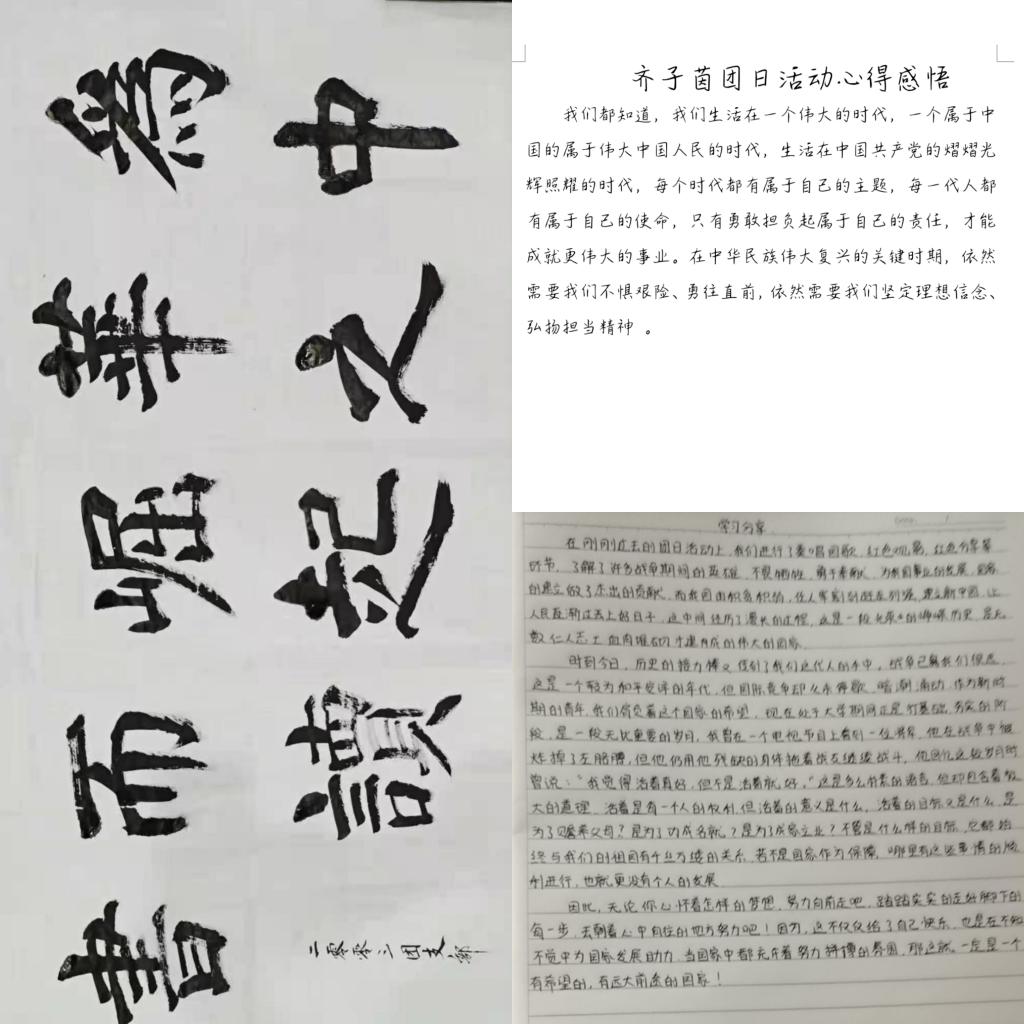 為中
華之
崛起
而讀
書
二零零三团支部
齐子茵团日活动心得感悟
我们都知道，我们生活在一个伟大的时代，一个属于中
国的属于伟大中国人民的时代，生活在中国共产党的熠熠光
辉照耀的时代，每个时代都有属于自己的主题，每一代人都
有属于自己的使命，只有勇敢担负起属于自己的责任，才能
成就更伟大的事业。在中华民族伟大复兴的关键时期，依然
需要我们不惧艰险、勇往直前，依然需要我们坚定理想信念、
弘扬担当精神 。
学习分享
在刚刚过去的团日活动上，我们进行了奏唱国歌、红色观影、红色分享等
环节，了解了许多战争期间的英雄，不畏牺牲，勇于奉献，为我国事业的发展，国家
的建立做了杰出的贡献。而我国由积贫积弱，任人宰割到赶走列强，建立新中国，让
人民逐渐过去上好日子，这中间经历了漫长的过程，这是一段光荣的峥嵘历史，是无
数仁人志士血肉堆砌才建成的伟大的国家。
时到今日，历史的接力棒又传到了我们这代人的手中，战争已离我们很远，
这是一个较为和平安详的年代，但国际竞争却从未停歇，暗潮涌动，作为新时
期的青年，我们肩负着这个国家的希望，现在处于大学期间正是打基础，务实的阶
段，是一段无比重要的岁月，我曾在一个电视节目上看到一位将军，他在战争中被
炸掉了左胳膊，但他仍用他残缺的身体拖着战友继续战斗，他回忆这段岁月时
曾说：“我觉得活着真好，但不是活着就好。”这是多么朴素的语言，但却包含着极
大的道理，活着是每一个人的权利，但活着的意义是什么，活着的目标又是什么，是
为了赡养父母？是为了功成名就？是为了成家立业？不管是什么样的目标，它都始
终与我们的祖国有千丝万缕的关系，若不是国家作为保障，哪里有这些事情的顺
利进行，也就更没有个人的发展。
因此，无论你心怀着怎样的梦想，努力向前走吧，踏踏实实的走好脚下的
每一步，去朝着心中向往的地方努力吧！因为，这不仅仅给了自己快乐，也是在不知
不觉中为国家发展助力，当国家中都充斥着努力拼搏的氛围，那这就一定是一个
有希望的，有远大前途的国家！